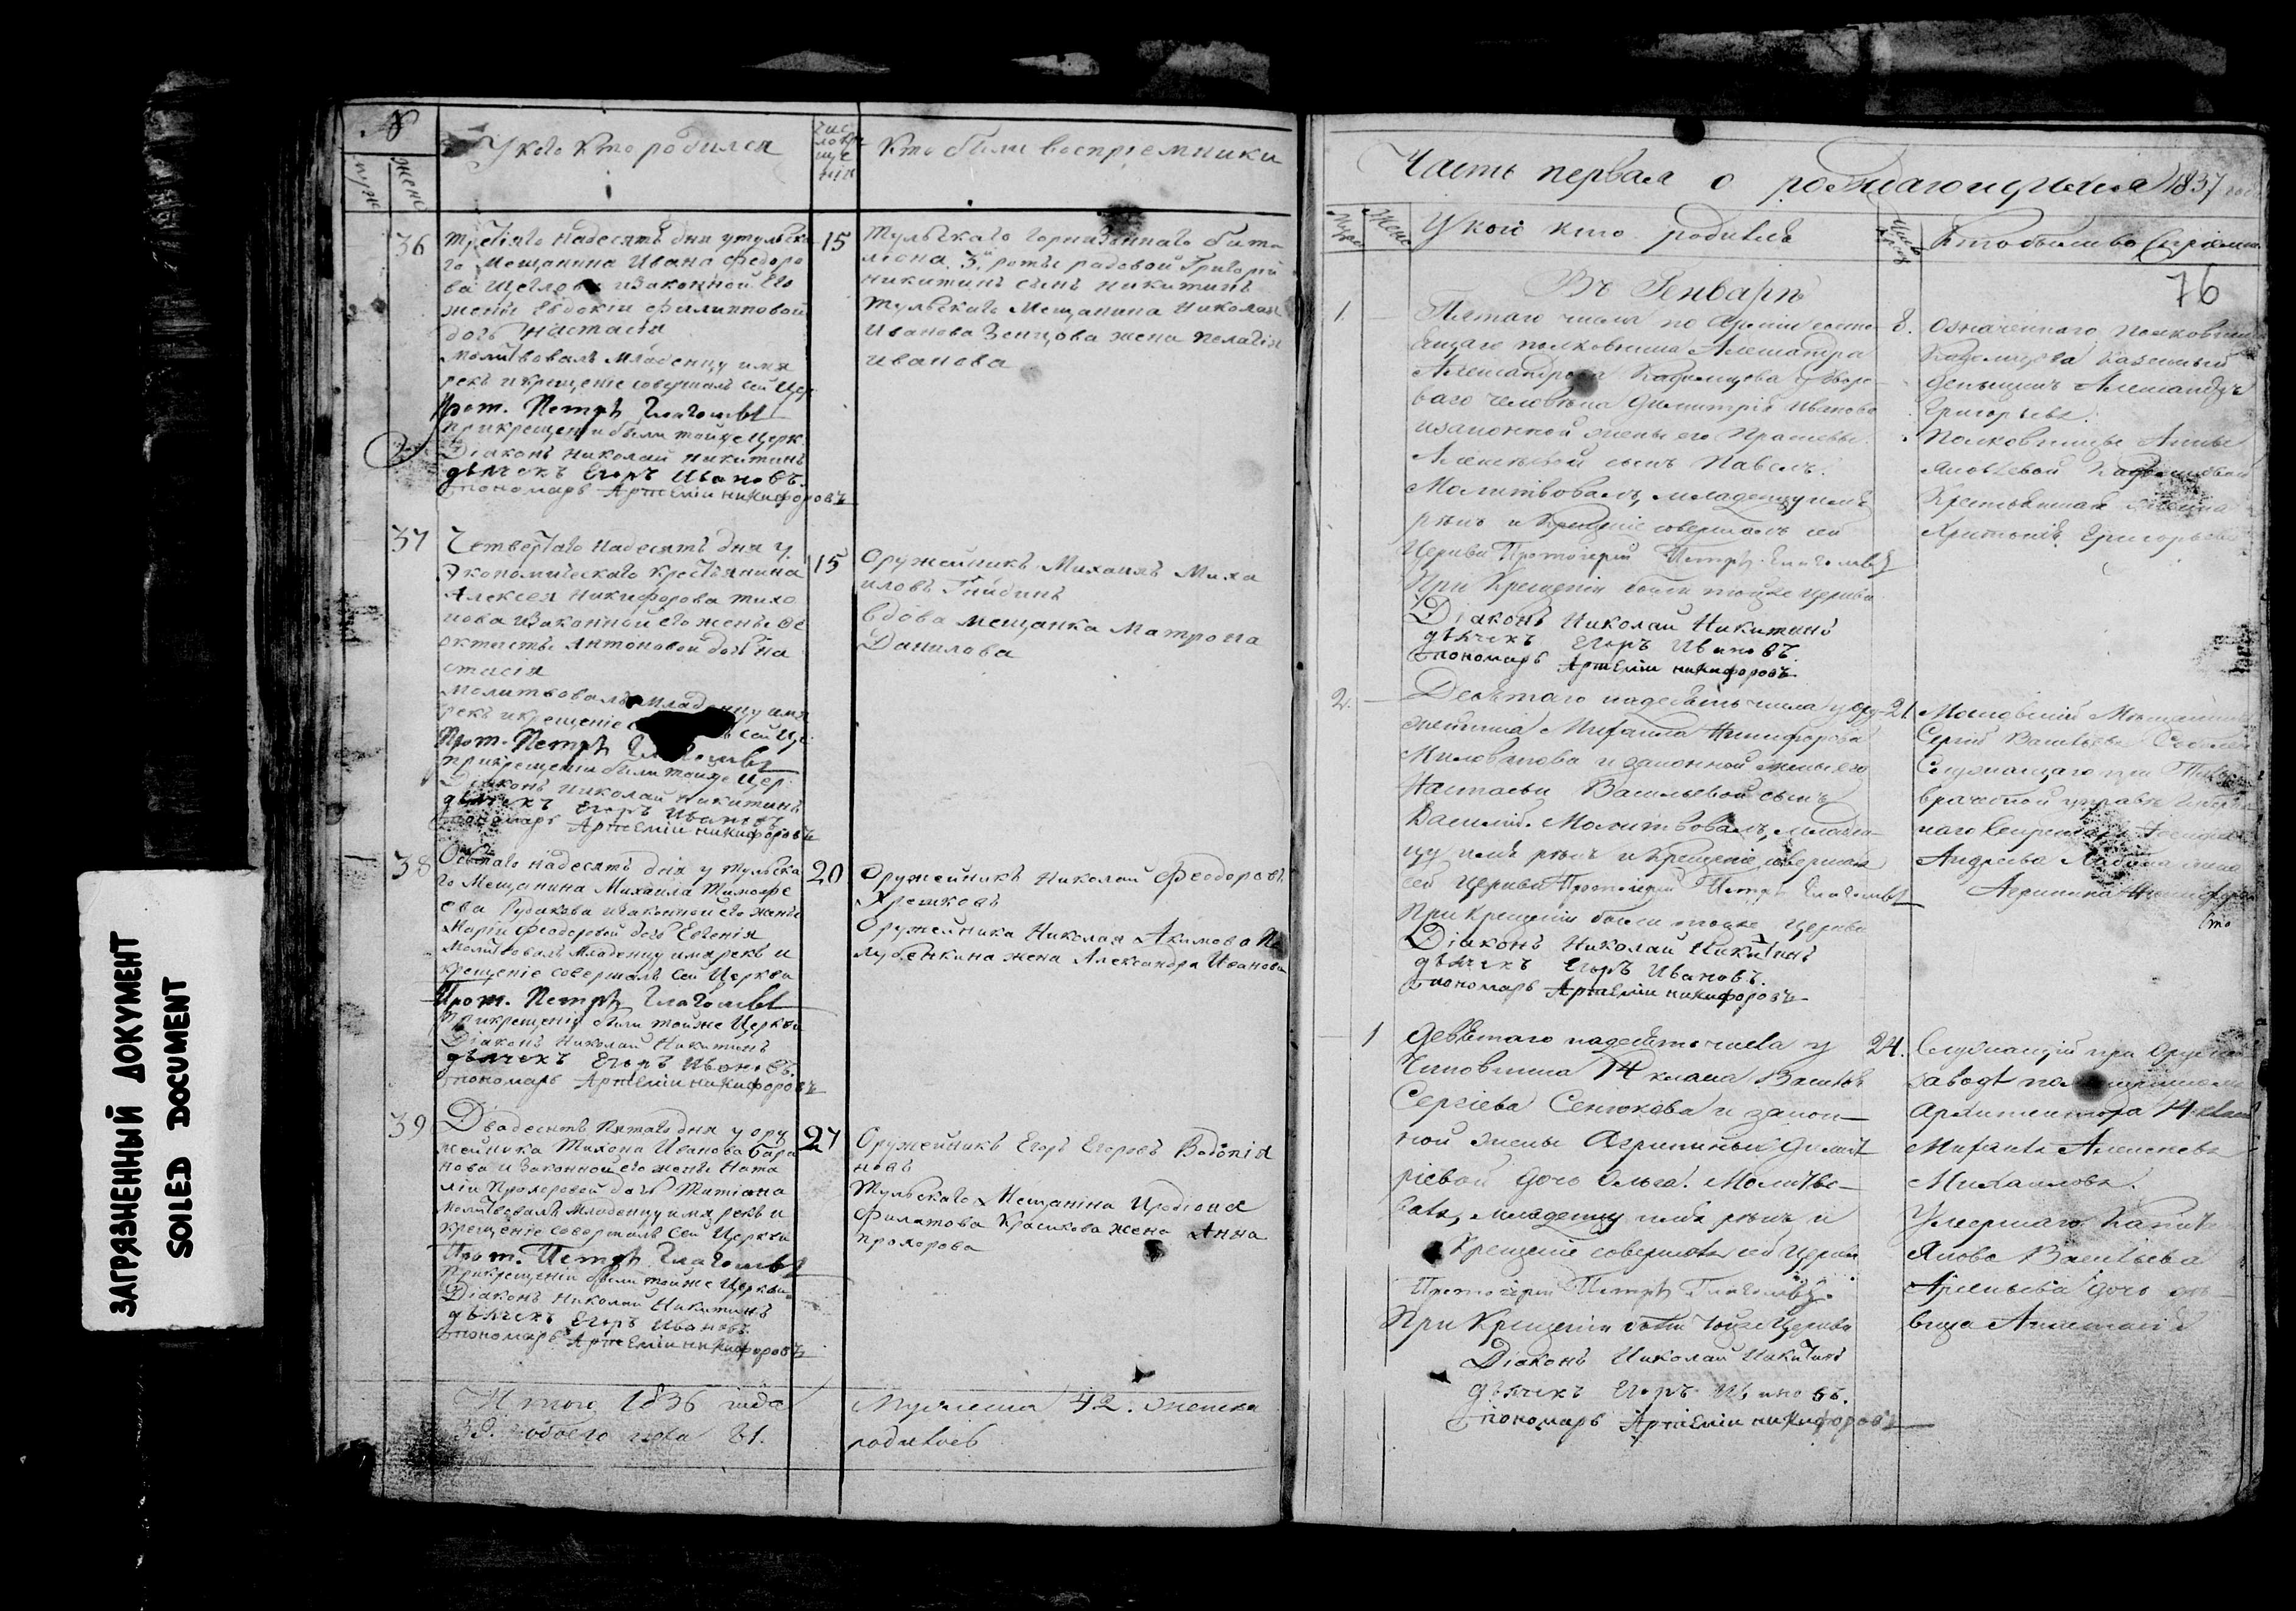 ЗАГРЯЗНЕННЫЙ ДОКУМЕНТ
SOILED DOCUMENT
№
муж
жен
У кого кто родился
Кто были восприемники
36
третiяго надесять дня у тульска
го мещанина Ивана Федоро
ва изаконной его
жены Евдокiи Филипповой
дочь Настасiя
молитвовалъ младенцу имя
рекъ и крещенiе совершалъ сей Цер
Прот. Петръ Глаголевъ
при крещенiи были тойже Церк.
Дiаконъ Николай Никитинъ
дьячекъ Егоръ Ивановъ.
пономарь Артемiй Никифоровъ
15
Тульскаго гарнизоннаго бата
лiона 3й роты рядовой Григорiй
Никитинъ сынъ Никитинъ
Тульскаго мещанина Николая
Иванова жена Пелагiя
Иванова
37
Четвертаго надесять дня у
экономическаго крестьянина
Алексея Никифорова Тихо
нова изаконной его жены Фе
октисты Антоновой дочь На
стасiя
молитвовалъ младенцу имя
рекъ и крещенiе сей Це
Прот. Петръ Глаголевъ
при крещенiи были тойже Цер.
Дiаконъ Николай Никитинъ
дьячекъ Егоръ Ивановъ
пономарь Артемiй Никифоровъ
15
Оружейникъ Михаилъ Миха
иловъ
вдова мещанка Матрона
Данилова
38
надесять дня у тульска
го мещанина Михаила Тимофе
ева Рудакова изаконной его жены
Марiи Феодоровой дочь Евгенiя
молитвовалъ младенцу имя рекъ и
крещенiе совершалъ сей Церкви
Прот. Петръ Глаголевъ
При крещенiи были тойже Церкви
Дiаконъ Николай Никитинъ
дьячекъ Егоръ Ивановъ.
пономарь Артемiй Никифоровъ
20
Оружейникъ Николай Феодоровъ
Оружейника Николая Акимова
жена Александра Иванова
39
Двадесять пятаго дня у ору
жейника Тихона Иванова Бара
нова и законной его жены Ната
лiи Прохоровой дочь Татiана
молитвовалъ младенцу имя рекъ и
крещенiе совершалъ сей Церкви
Прот. Петръ Глаголевъ
При крещенiи были тойже Церкви
Дiаконъ Николай Никитинъ
дьячекъ Егоръ Ивановъ.
пономарь Артемiй Никифоровъ
27
Оружейникъ Егоръ Егоровъ
Тульскаго мещанина Иродiона
Филатова Красикова жена Анна
Прохорова
Итого 1836 года
мужеска 42. женска
39. обоего пола 81.
родилось
Часть первая о раждающихся 1837 года
У кого кто родился
Кто были восприемники
76
Въ Генваре
1.
Пятаго числа по армiи состо
ящаго полковника Александра
Александрова дворо-
ваго человека Димитрiя Иванова
изаконной жены его Прасковьи
Алексеевой сынъ Павелъ.
Молитвовалъ, младенцу имя
рекъ и крещенiе совершалъ сей
Церкви Протоiерей Петръ Глаголевъ
При крещенiи были тойже Церкви
Дiаконъ Николай Никитинъ
дьячекъ Егоръ Ивановъ.
пономарь Артемiй Никифоровъ.
8.
Означеннаго полковника
казенный
деньщикъ Александръ
Григорьевъ.
Полковницы Анны
Яковлевой
Крестьянская
Григорьева
2.
надесять числа у ору-
жейника Михаила Никифорова
Милованова и законной жены его
Настасьи Васильевой сынъ
Василiй. Молитвовалъ, младен-
цу имя рекъ и крещенiе совершалъ
сей Церкви Протоiерей Петръ Глаголевъ
При крещенiи были тойже Церкви
Дiаконъ Николай Никитинъ
дьячекъ Егоръ Ивановъ.
пономарь Артемiй Никифоровъ
21
Московскiй мещанинъ
Сергiй Васильевъ
Служащаго при
врачебной управе
Андреева жена
Агрипина
1
Девятаго надесять числа у
Чиновника 14 класса Василья
Сергiева Сенюкова и закон-
ной жены Агрипины Димит
рiевой дочь Ольга. Молитво-
валъ, младенцу имя рекъ и
Крещенiе совершалъ сей Церкви
Протоiерей Петръ Глаголевъ.
При Крещенiи были тойже Церкви
Дiаконъ Николай Никитинъ
дьячекъ Егоръ Ивановъ.
пономарь Артемiй Никифоровъ
24.
Служащiй при Оружейномъ
заводе
архитектора 14 класса
Михаилъ Алексеевъ
Михайловъ.
Умершаго
Якова Васильева
Арсеньева дочь де-
вица